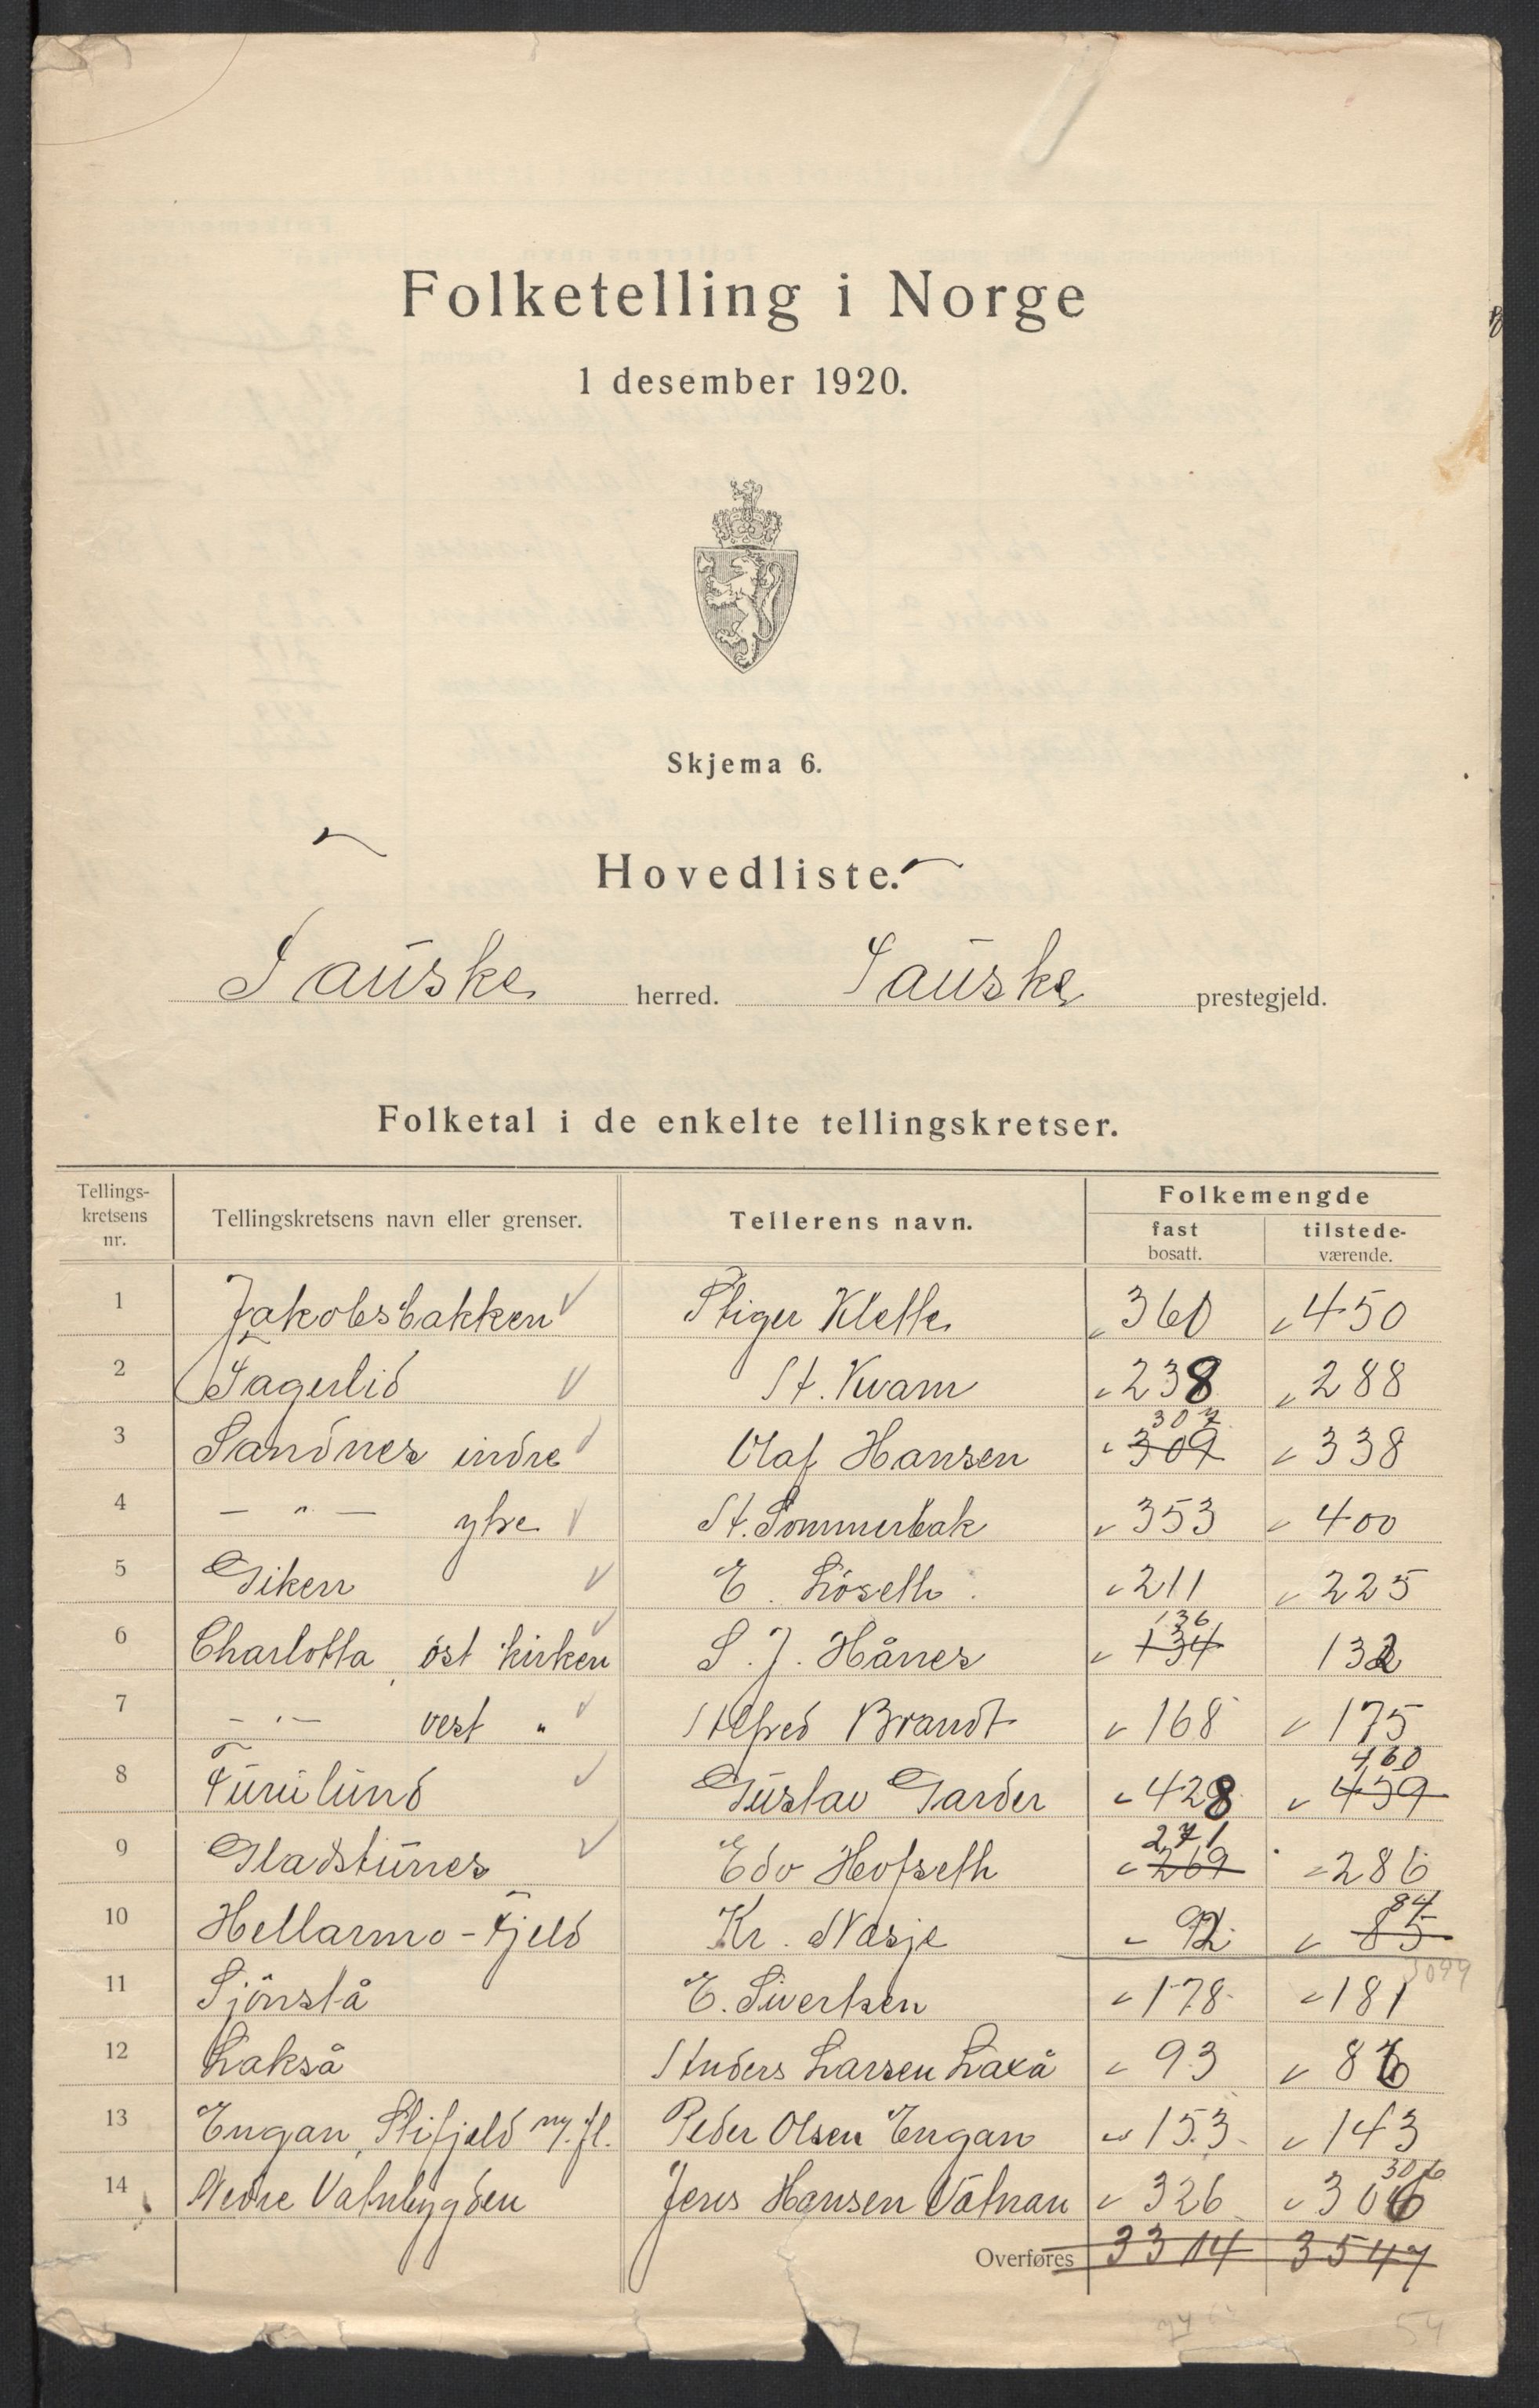 Folketelling i Norge
1 desember 1920.
Skjema 6.
Hovedliste.
Fauske herred. Fauske prestegjeld.
Folketal i de enkelte tellingskretser.
Tellings-kretsens nr. Tellingskretsens navn eller grenser. Tellerens navn. Folkemengde fast bosatt. tilstede-værende.
1 Jakobsbakken Stiger Klette 360 450
2 Fagerlid A. Kvam 238 288
307
3 Sandnes indre Olaf Hansen 309 338
4 — " — ytre A. Sommerbak 353 400
5 Giken E. Löseth 211 225
136
6 Charlotta, öst kirken S. J. Hånes 134 132
7 — " — vest " Alfred Brandt 168 175
460
8 Furulund Gustav Garder 428 459
271
9 Gladstunes Edv Hofseth 269 286
84
10 Hellarmo - Fjeld Kr. Nasje 92 85
3099
11 Sjönstå E. Sivertsen 178 181
12 Lakså Anders Larsen Laxå 93 86
13 Engan, Stifjeld m. fl. Peder Olsen Engan 153 143
306
14 Nedre Vatnbygden Jens Hansen Vatnan 326 306
Overføres 3314 3547
54